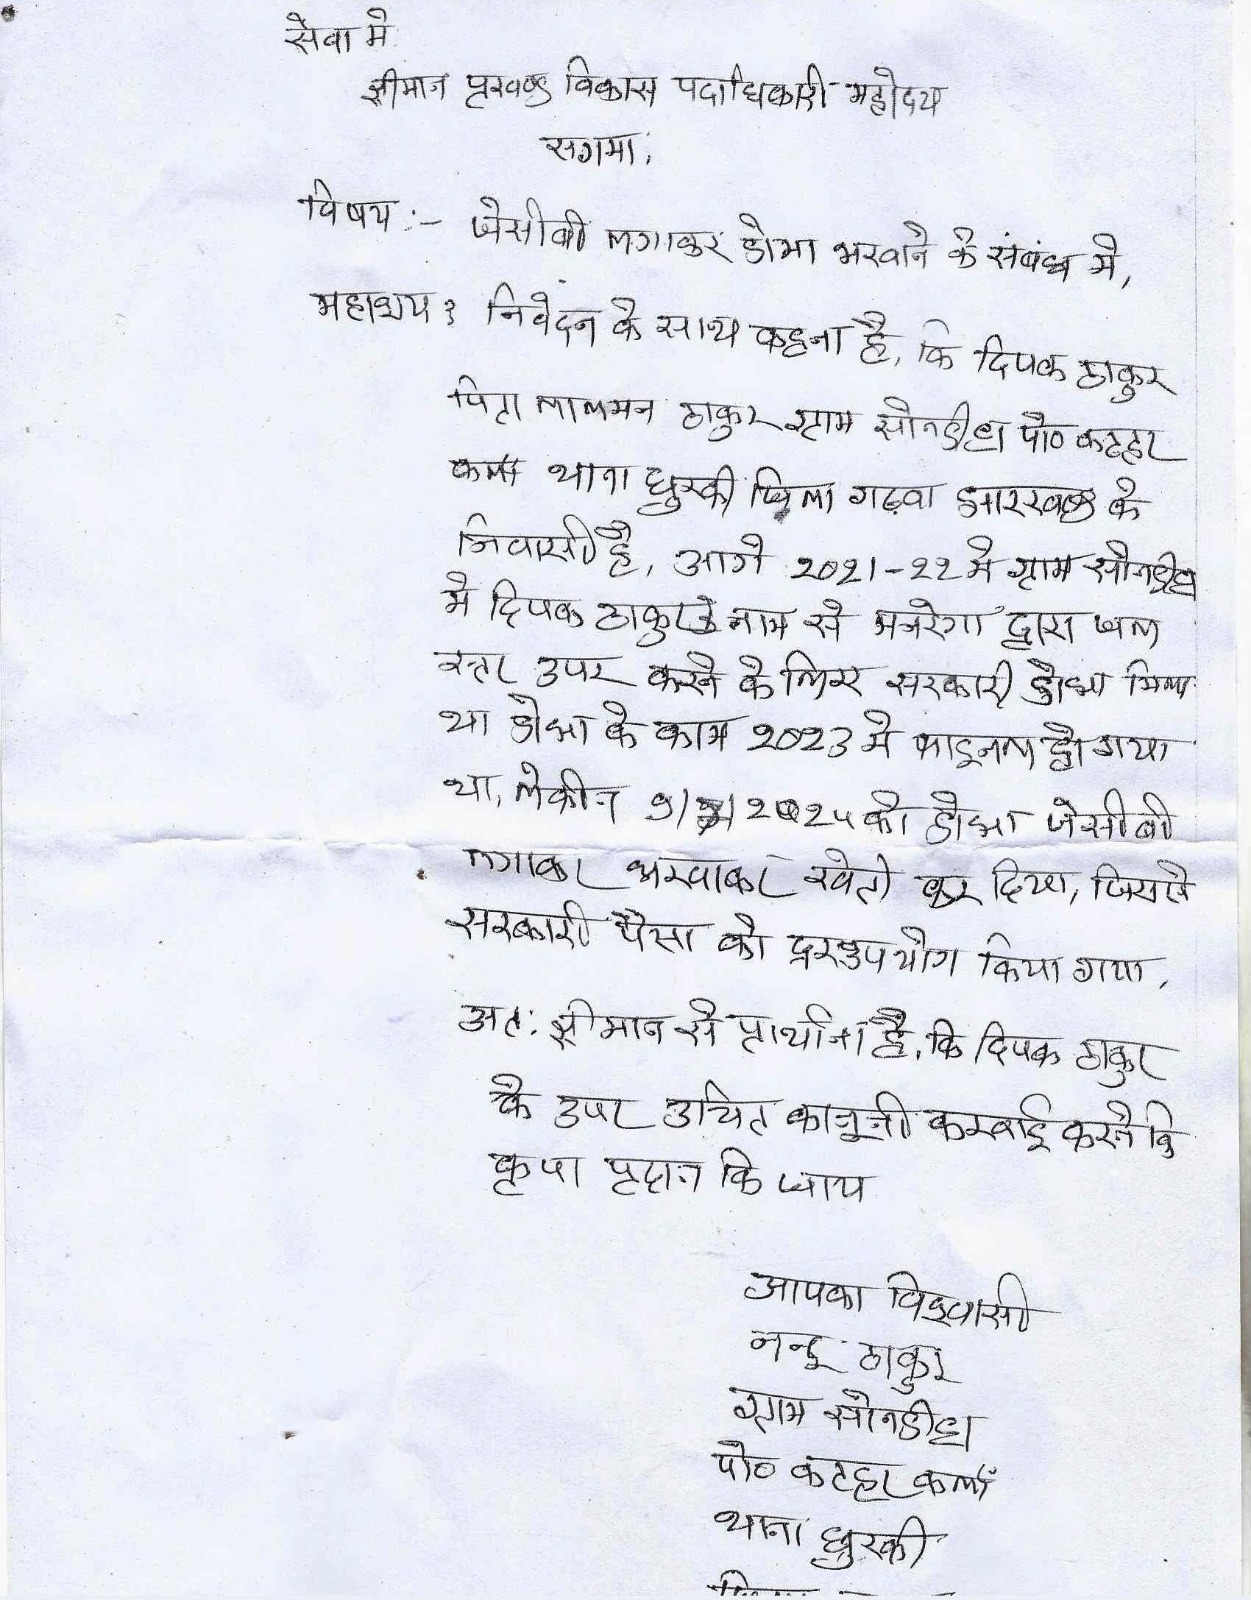 सेवा मे
श्रीमान प्रखण्ड विकास पदाधिकारी महोदय
सगमा,
विषय :- जेसीबी लगाकर डोभा भरवाने के संबंध मे,
महाशय : निवेदन के साथ कहना है, कि दिपक ठाकुर
पिता लालमन ठाकुर ग्राम सोनडीहा पो० कटहर
कला थाना धुरकी जिला गढ़वा झारखण्ड के
निवासी है, आगे 2021-22 मे ग्राम सोनडीहा
मे दिपक ठाकुर के नाम से मनरेगा द्वारा जल
स्तर उपर करने के लिए सरकारी डोभा मिला
था डोभा के काम 2023 मे फाइनल हो गया
था, लेकीन 2024 को डोभा जेसीबी
लगाकर भरवाकर खेती कर दिया, जिससे
सरकारी पैसा को दुरूपयोग किया गया,
अत: श्रीमान से प्रार्थाना है, कि दिपक ठाकुर
के उपर उचित कानूनी करवाई करने कि
कृपा प्रदान कि जाय
आपका विश्वासी
नन्दू ठाकुर
ग्राम सोनडीहा
पो० कटहर कलाँ
थाना धुरकी